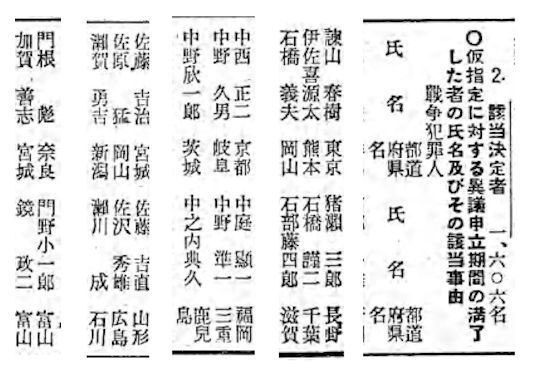 2. 該当決定者 一、六〇六名
〇仮指定に対する異議申立期間の満了
した者の氏名及びその該当事由
戦争犯罪人
氏 名 都道府県名 氏 名 都道府県名
諫山 春樹 東京 猪瀬 三郎 長野
伊佐喜源太 熊本 石橋 謹二 千葉
石橋 義夫 岡山 石部藤四郎 滋賀
中西 正二 京都 中庭 顕一 福岡
中野 久男 岐阜 中野 準一 三重
中野欣一郎 茨城 中之内典久 鹿児島
佐藤 吉治 宮城 佐藤 吉直 山形
佐原 猛 岡山 佐沢 秀雄 広島
瀬賀 勇吉 新潟 瀬川 成 石川
門根 彪 奈良 門野小一郎 富山
加賀 善志 宮城 鏡 政二 富山